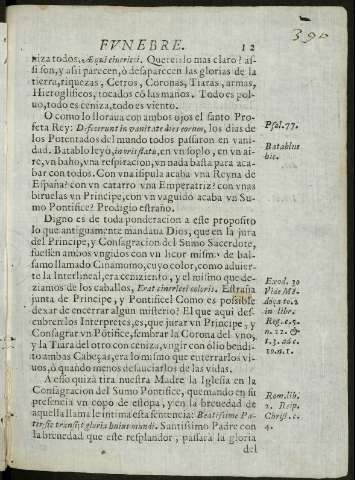 390
FVNEBRE. 12
niza todos, Æqui cinericei. Quereislo mas claro? as-
si son, y assi parecen, ò desaparecen las glorias de la
tierra, riquezas, Cetros, Coronas, Tiaras, armas,
Hieroglificos, tocados cõ las manos. Todo es pol-
uo, todo es ceniza, todo es viento.
O como lo lloraua con ambos ojos el santo Pro-
feta Rey: Defecerunt in vanitate dies eorum, los dias de
los Potentados del mundo todos passaron en vani-
dad. Batablo leyò, in oris flatu, en vn soplo, en vn ai-
re, vn baho, vna respiracion, vn nada basta para aca-
bar con todos. Con vna isipula acaba vna Reyna de
España? con vn catarro vna Emperatriz? con vnas
biruelas vn Principe, con vn vaguido acaba vn Su-
mo Pontifice? Prodigio estraño.
Psal. 77.
Batablus
hic.
Digno es de toda ponderacion a este proposito
lo que antiguamente mandaua Dios, que en la jura
del Principe, y Consagracion del Sumo Sacerdote,
fuessen ambos vngidos con vn licor mismo de bal-
samo llamado Cinamomo, cuyo color, como aduier-
te la Interlineal, era ceniziento, y el mismo que de-
ziamos de los caballos, Erat cinericei coloris. Estraña
junta de Principe, y Pontifice! Como es possible
dexar de encerrar algun misterio? El que aqui des-
cubren los Interpretes, es, que jurar vn Principe, y
Consagrar vn Põtifice, sembrar la Corona del vno,
y la Tiara del otro con ceniza, vngir con olio bendi-
to ambas Cabeças, era lo mismo que enterrarlos vi-
uos, ò quando menos desauciarlos de las vidas.
Exod. 30
Vide Mẽ-
doça to. 2
in libr.
Reg. c. 9.
n. 12. &
1. 3. ad c.
10. n. 1.
A esso quizà tira nuestra Madre la Iglesia en la
Consagracion del Sumo Pontifice, quemando en su
presencia vn copo de estopa, y en la breuedad de
aquella llama le intima esta sentencia: Beatissime Pa-
ter sic transijt gloria huius mundi. Santissimo Padre con
la breuedad que este resplandor, passarà la gloria
del
Rom. lib.
2. Reip.
Christ. c.
4.